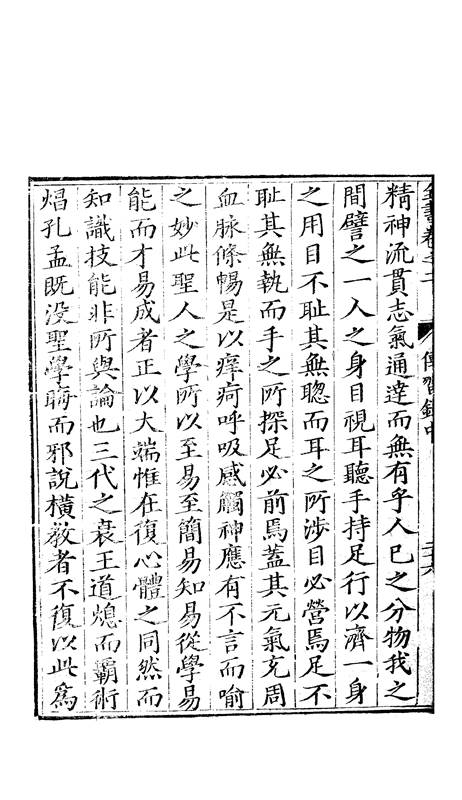 全書卷之二 傳習錄中 二十六
精神流貫志氣通達而無有乎人已之分物我之
間譬之一人之身目視耳聽手持足行以濟一身
之用目不恥其無聦而耳之所涉目必營焉足不
恥其無執而手之所探足必前焉葢其元氣充周
血脉條暢是以痒疴呼吸感觸神應有不言而喻
之妙此聖人之學所以至易至簡易知易從學易
能而才易成者正以大端惟在復心體之同然而
知識技能非所與論也三代之衰王道熄而霸術
焻孔孟既没聖學晦而邪說橫教者不復以此爲